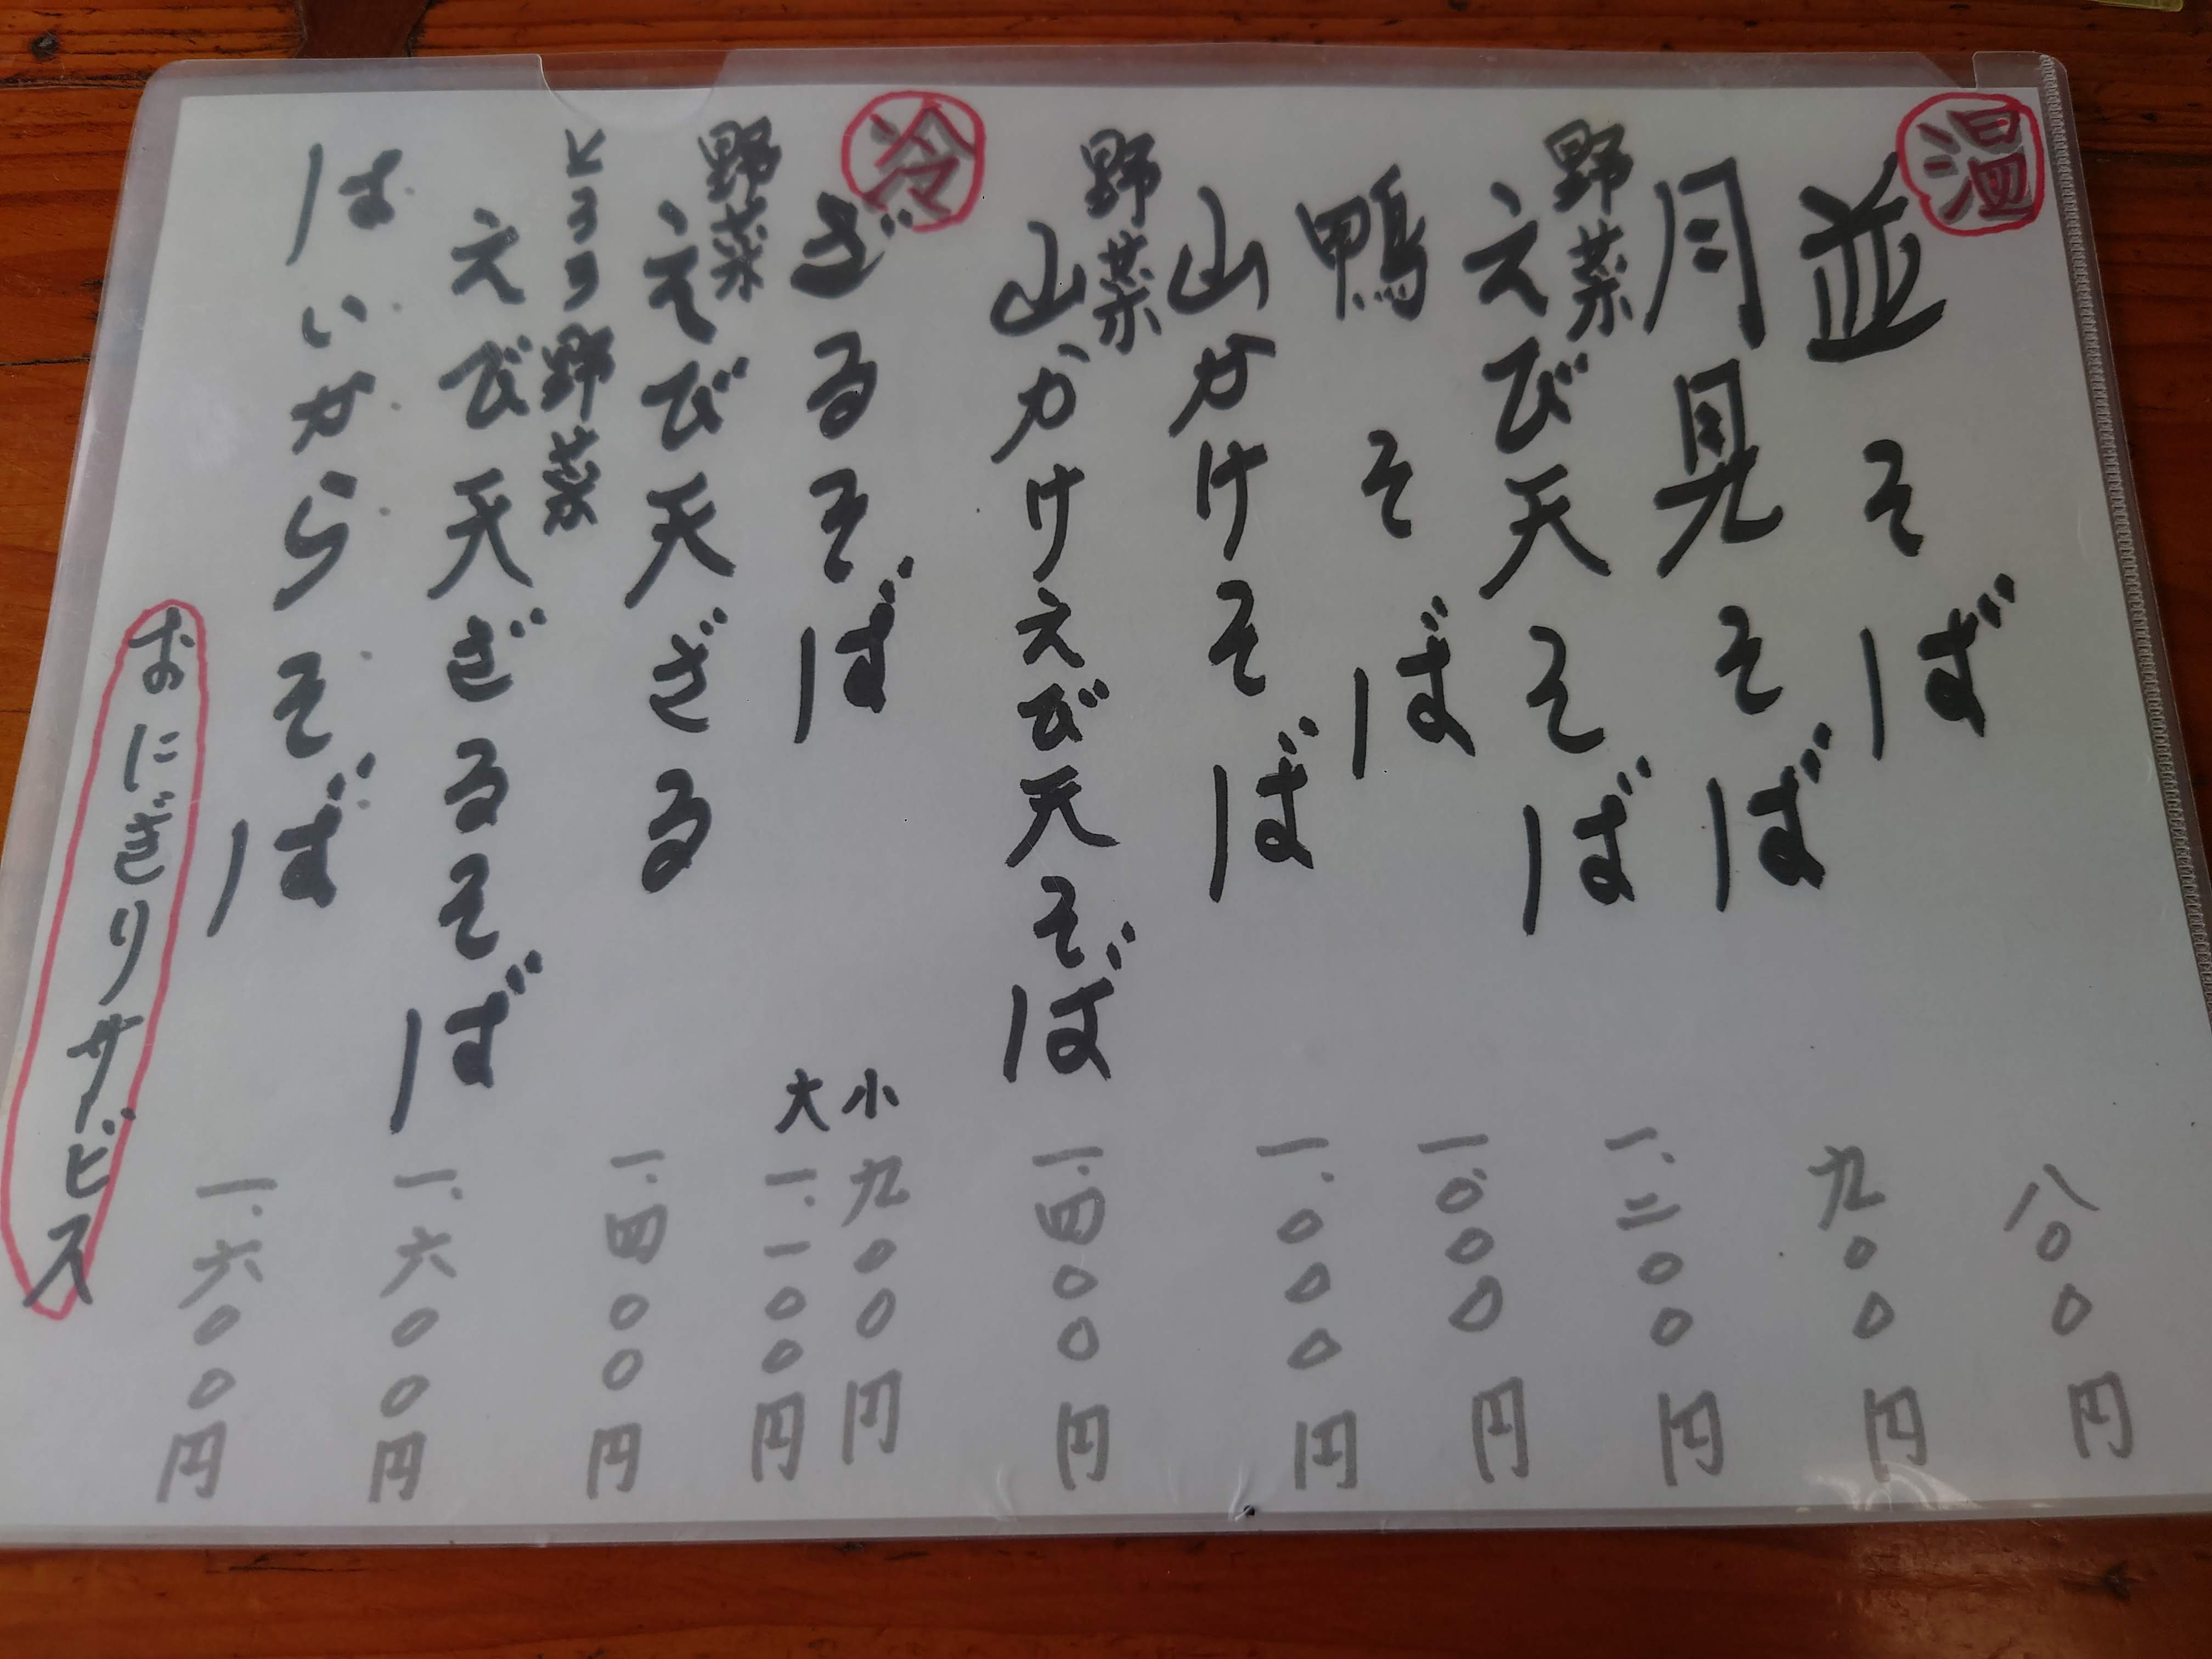 温
並そば 八〇〇円
月見そば 九〇〇円
野菜えび天そば 一.二〇〇円
鴨そば 一.〇〇〇円
山かけそば 一.〇〇〇円
野菜山かけえび天そば 一.四〇〇円
冷
ざるそば 小 九〇〇円
大 一.一〇〇円
野菜えび天ざる 一.四〇〇円
とろろ野菜えび天ざるそば 一.六〇〇円
はいからそば 一.六〇〇円
おにぎりサービス